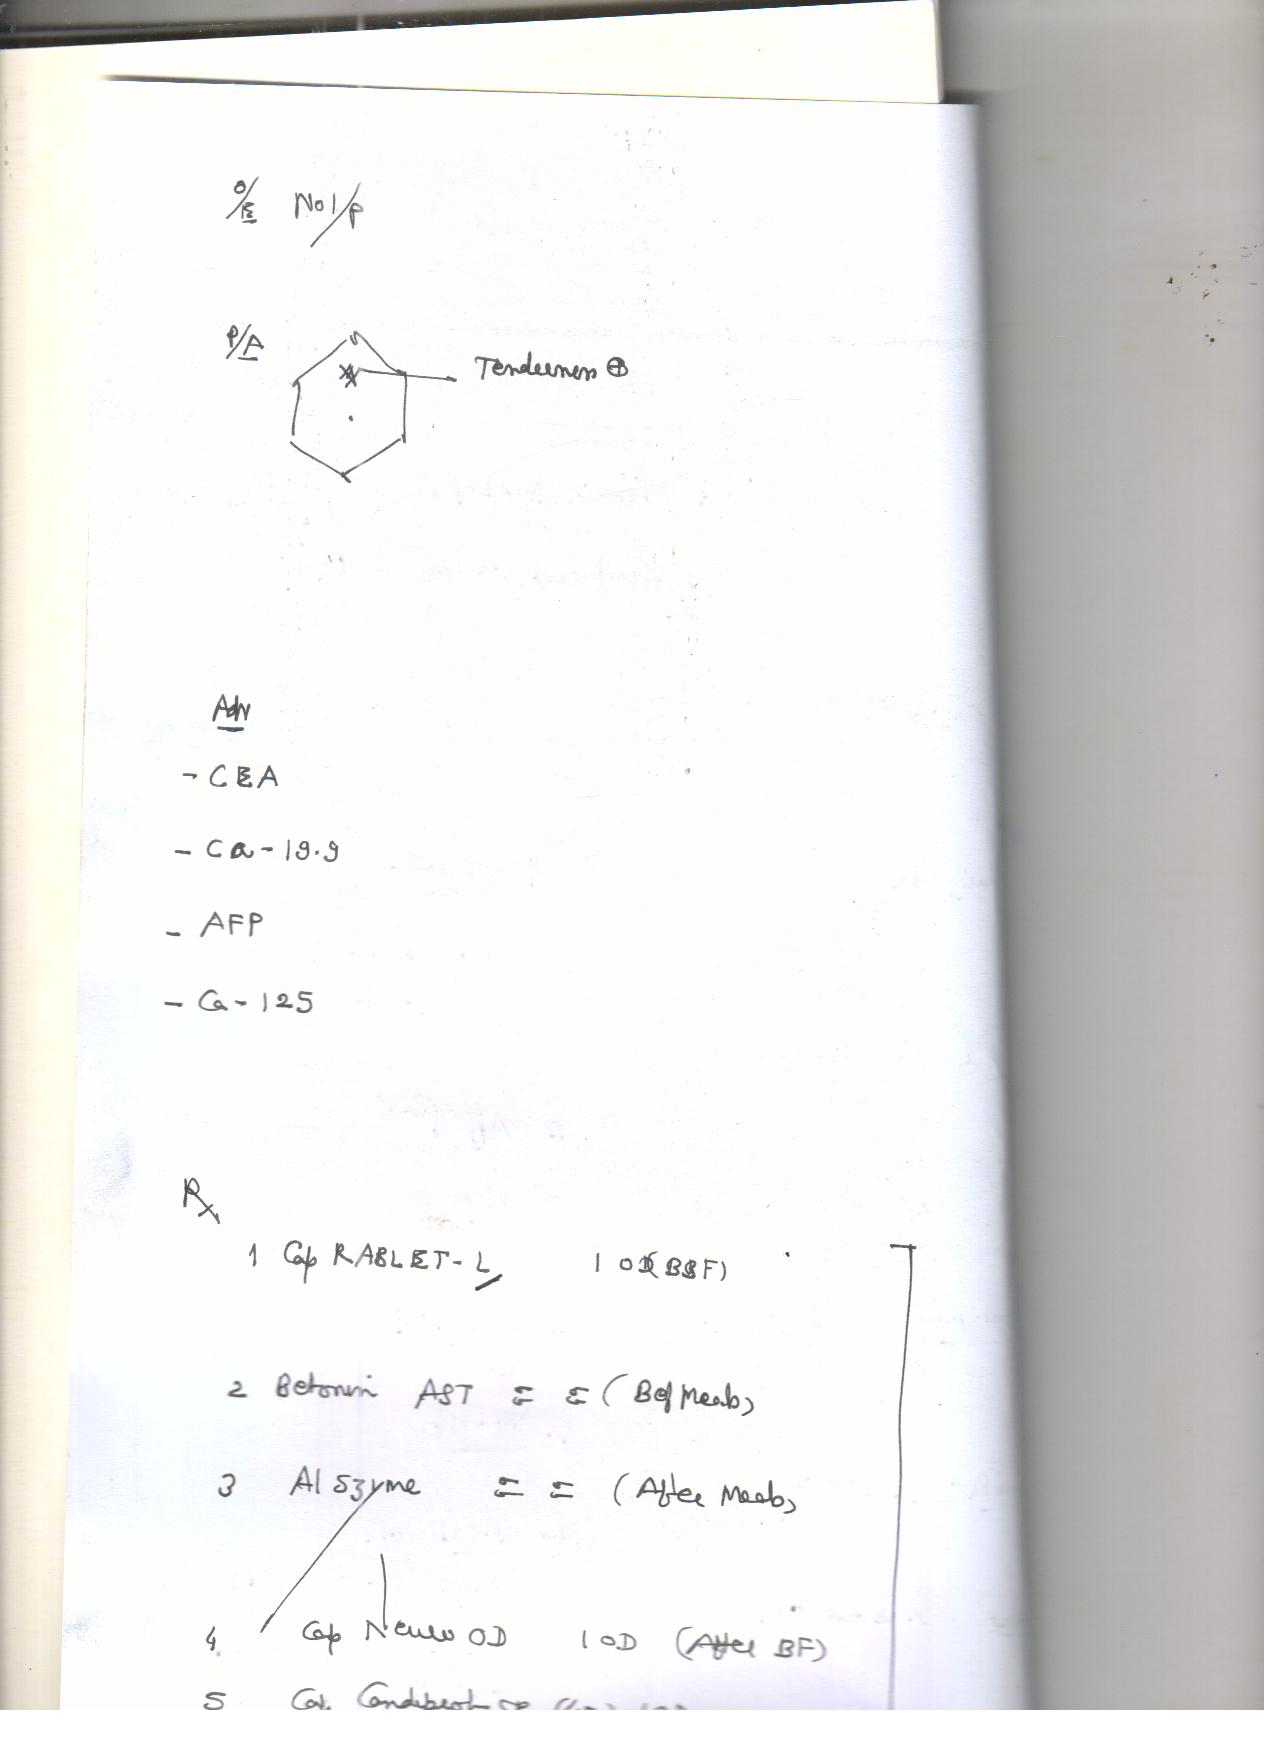 O/E No I/P
P/A Tenderness ⊕
Adv
- CEA
- Ca-19.9
- AFP
- Ca-125
Rx
1 Cap RABLET-L 1 OD (BBF)
2 AST (Bef Meals)
3 Al 5zyme (After Meals)
4 Cap Neuro OD 1 OD (After BF)
5